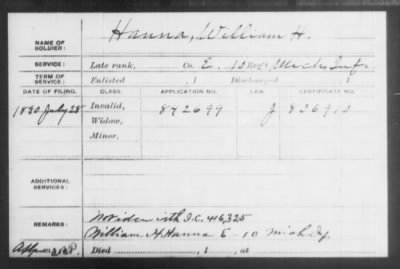 NAME OF SOLDIER: Hanna, William H.
SERVICE: Late rank, Co. E. 10 REG'T Mich. Inf.
TERM OF SERVICE: Enlisted , 1 Discharged , 1
DATE OF FILING. CLASS. APPLICATION NO. LAW. CERTIFICATE NO.
1890 July 28 Invalid, 872699 J 836910
Widow,
Minor,
ADDITIONAL SERVICES:
REMARKS: Not iden with I.C. 416,325
William H. Hanna E - 10 Mich Inf.
Died , 1 , at